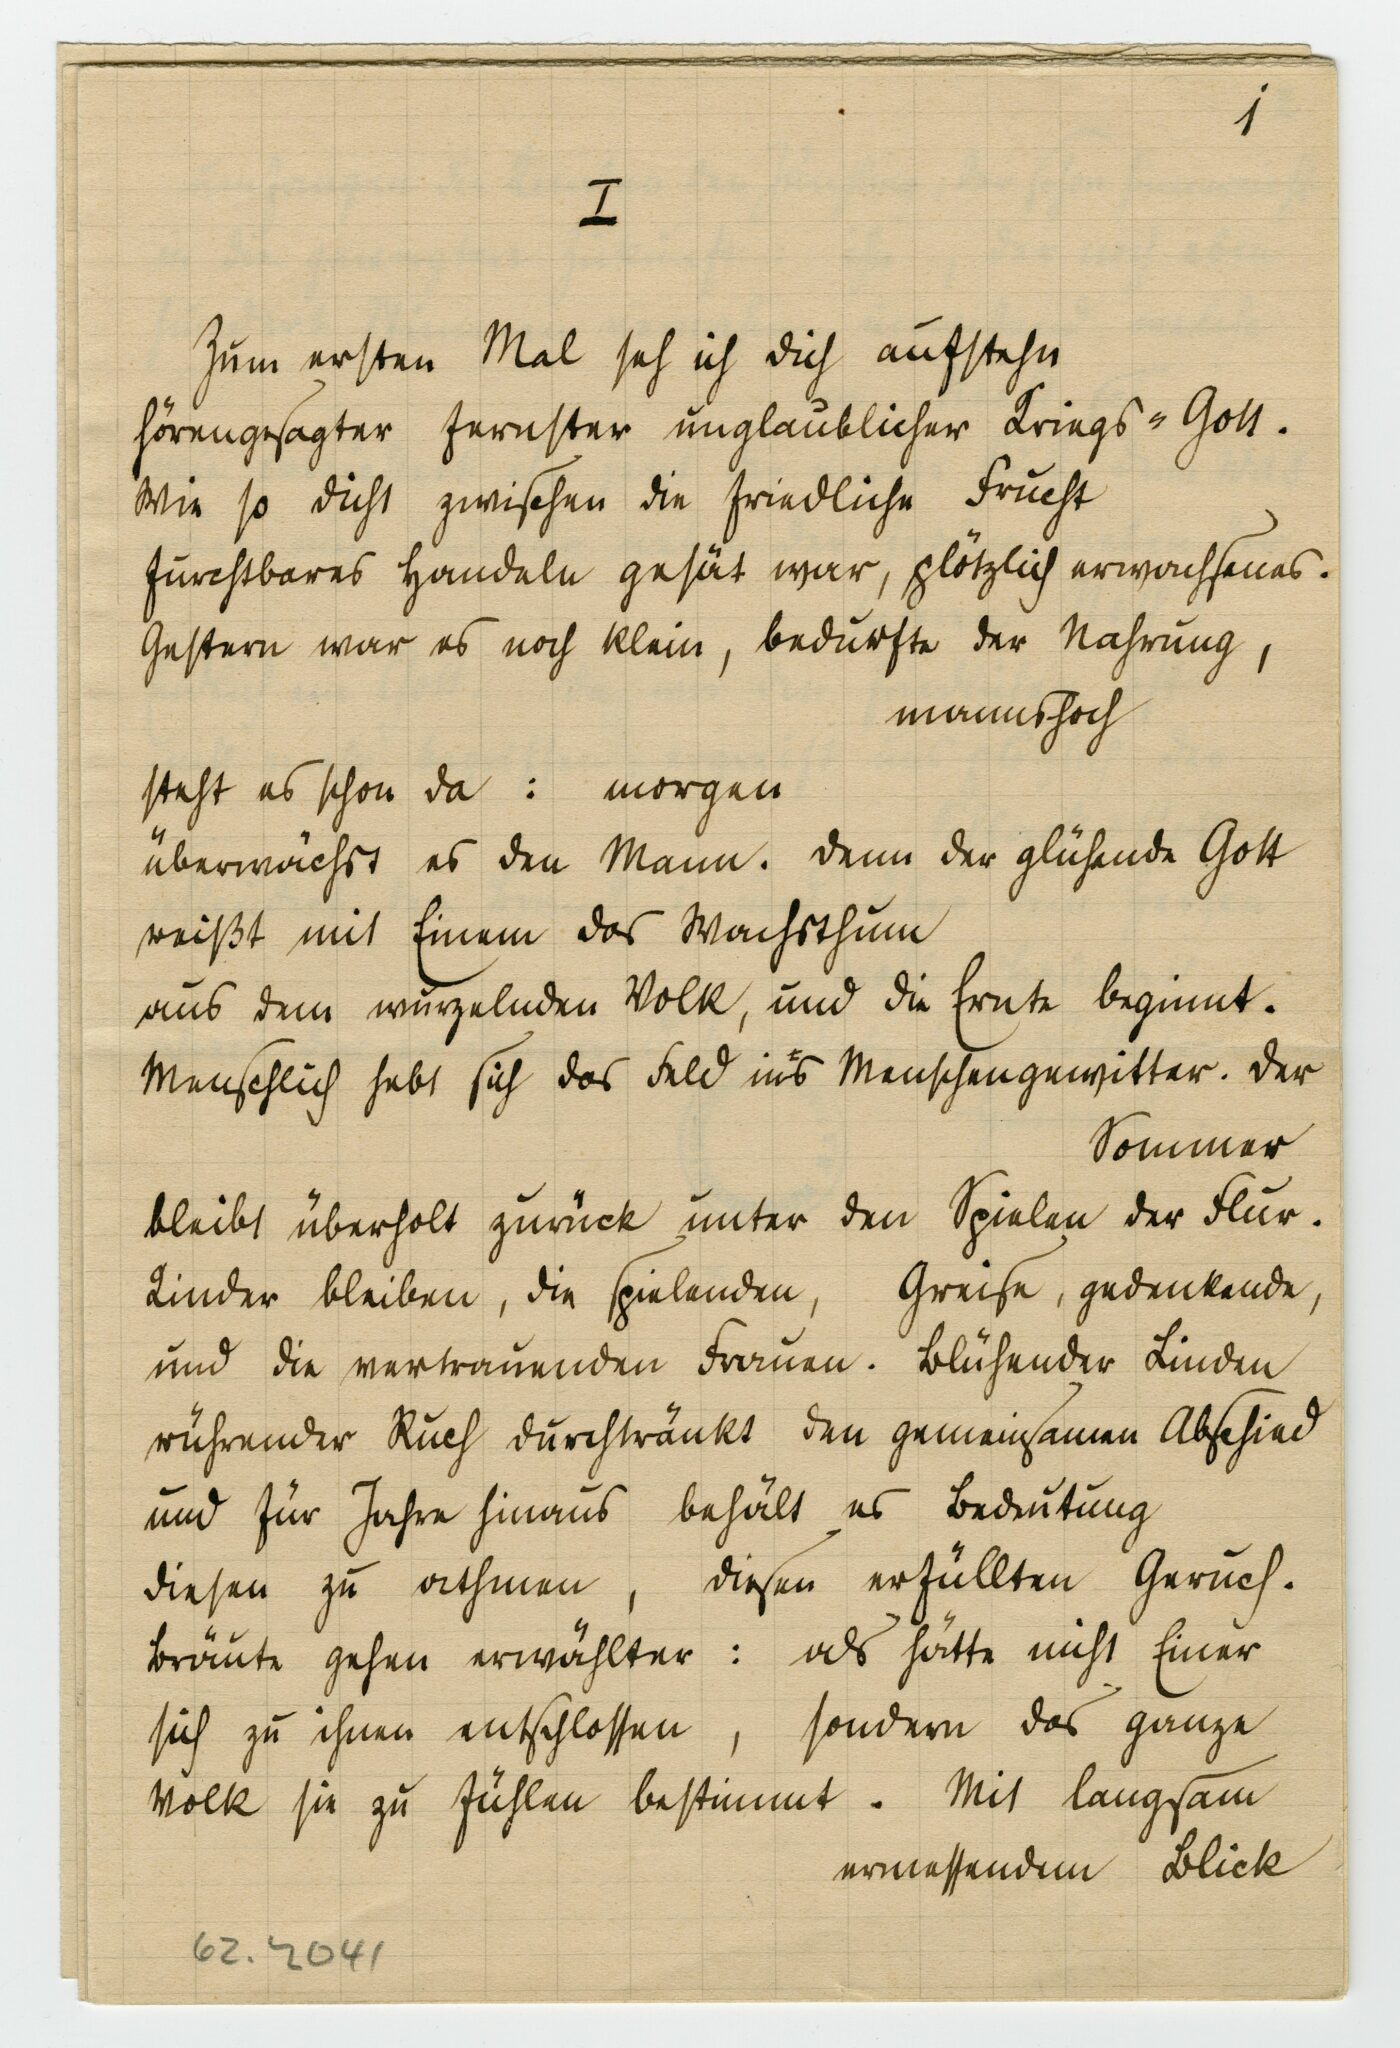 1
I
Zum ersten Mal seh ich dich aufstehn
hörengesagter fernster unglaublicher Kriegs=Gott.
Wie so dicht zwischen die friedliche Frucht
furchtbares Handeln gesät war, plötzlich erwachsenes.
Gestern war es noch klein, bedurfte der Nahrung,
mannshoch
steht es schon da : morgen
überwächst es den Mann. Denn der glühende Gott
reißt mit Einem das Wachsthum
aus dem wurzelnden Volk, und die Ernte beginnt.
Menschlich hebt sich das Feld in's Menschengewitter. Der
Sommer
bleibt überholt zurück unter den Spielen der Flur.
Kinder bleiben, die spielenden, Greise, gedenkende,
und die vertrauenden Frauen. Blühender Linden
rührender Ruch durchtränkt den gemeinsamen Abschied
und für Jahre hinaus behält es Bedeutung
diesen zu athmen, diesen erfüllten Geruch.
Bräute gehen erwählter : als hätte nicht Einer
sich zu ihnen entschlossen, sondern das ganze
Volk sie zu fühlen bestimmt. Mit langsam
ermessendem Blick
62.2041